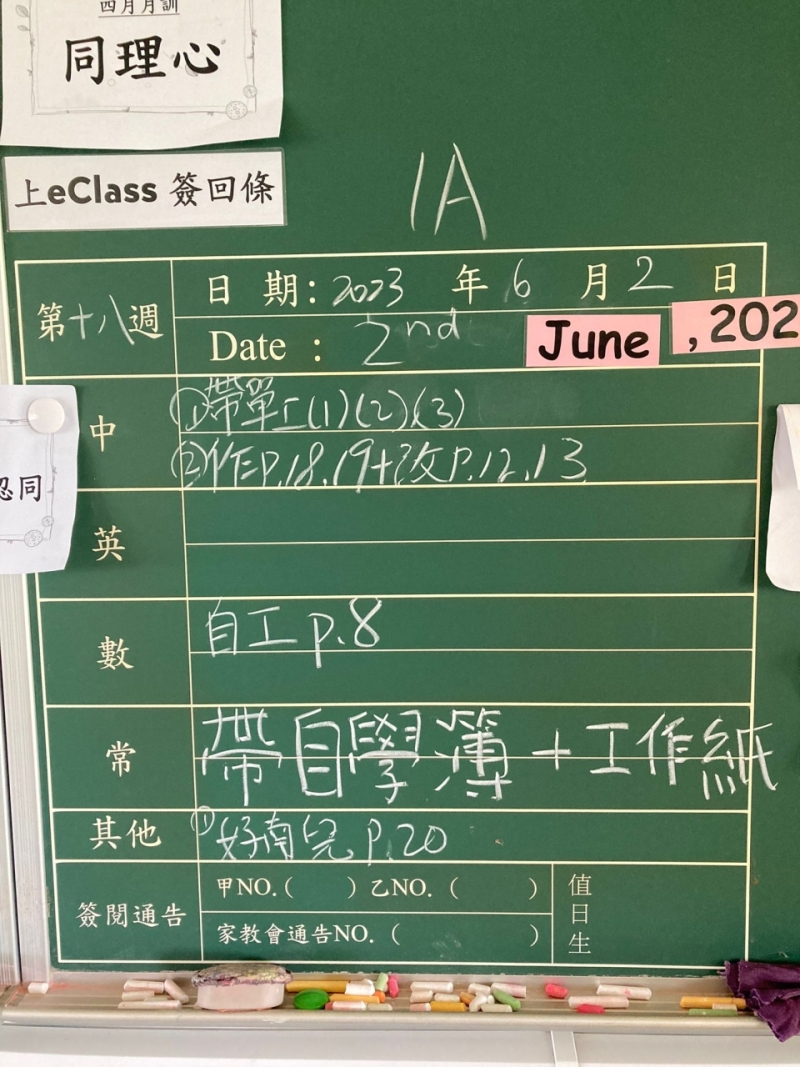 四月月訓
同理心
上eClass 簽回條
1A
第十八週
日 期: 2023 年 6 月 2 日
Date : 2nd June , 202
中
①帶單工(1)(2)(3)
②作P.18.19+改P.12.13
同
英
數
自工 p.8
常
帶自學簿+工作紙
其他
①好南兒 P.20
簽閱通告
甲NO.( ) 乙NO. ( )
家教會通告NO. ( )
值日生